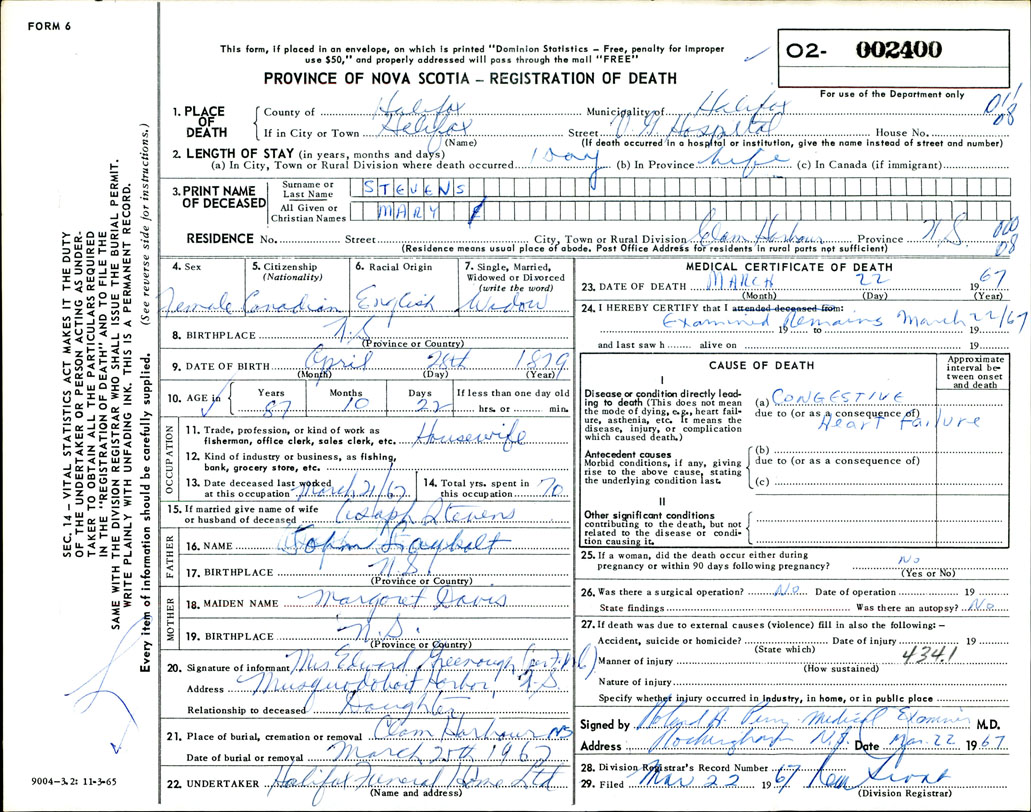 FORM 6
This form, if placed in an envelope, on which is printed "Dominion Statistics – Free, penalty for improper
use $50," and properly addressed will pass through the mail "FREE"
PROVINCE OF NOVA SCOTIA – REGISTRATION OF DEATH
O2- 002400
For use of the Department only
SEC. 14 – VITAL STATISTICS ACT MAKES IT THE DUTY
OF THE UNDERTAKER OR PERSON ACTING AS UNDER-
TAKER TO OBTAIN ALL THE PARTICULARS REQUIRED
IN THE "REGISTRATION OF DEATH" AND TO FILE THE
SAME WITH THE DIVISION REGISTRAR WHO SHALL ISSUE THE BURIAL PERMIT.
WRITE PLAINLY WITH UNFADING INK. THIS IS A PERMANENT RECORD.
Every item of information should be carefully supplied. (See reverse side for instructions.)
1. PLACE OF DEATH
County of Halifax Municipality of Halifax
If in City or Town Halifax Street V G Hospital House No.
(Name) (If death occurred in a hospital or institution, give the name instead of street and number)
08
2. LENGTH OF STAY (in years, months and days)
(a) In City, Town or Rural Division where death occurred 1 Day (b) In Province Life (c) In Canada (if immigrant)
3. PRINT NAME OF DECEASED
Surname or Last Name STEVENS
All Given or Christian Names MARY
RESIDENCE No. Street City, Town or Rural Division Clam Harbour Province N.S.
(Residence means usual place of abode. Post Office Address for residents in rural parts not sufficient)
08
4. Sex Female
5. Citizenship (Nationality) Canadian
6. Racial Origin English
7. Single, Married, Widowed or Divorced (write the word) Widow
8. BIRTHPLACE N.S.
(Province or Country)
9. DATE OF BIRTH April 28th 1879
(Month) (Day) (Year)
10. AGE in Years 87 Months 10 Days 22 If less than one day old hrs. or min.
OCCUPATION
11. Trade, profession, or kind of work as
fisherman, office clerk, sales clerk, etc. Housewife
12. Kind of industry or business, as fishing,
bank, grocery store, etc.
13. Date deceased last worked
at this occupation March 21/67
14. Total yrs. spent in
this occupation 70
15. If married give name of wife
or husband of deceased Asaph Stevens
FATHER
16. NAME John
17. BIRTHPLACE N.S.
(Province or Country)
MOTHER
18. MAIDEN NAME Margaret Davis
19. BIRTHPLACE N.S.
(Province or Country)
20. Signature of informant Mrs Edward Greenough
Address Musquodoboit Harbor, N.S.
Relationship to deceased Daughter
21. Place of burial, cremation or removal Clam Harbour NS
Date of burial or removal March 25th 1967
22. UNDERTAKER Halifax Funeral Home Ltd
(Name and address)
9004–3.2: 11-3-65
MEDICAL CERTIFICATE OF DEATH
23. DATE OF DEATH MARCH 22 1967
(Month) (Day) (Year)
24. I HEREBY CERTIFY that I attended deceased from:
Examined Remains March 22/67
19 to 19
and last saw h alive on 19
CAUSE OF DEATH
Approximate interval between onset and death
I
Disease or condition directly lead-
ing to death (This does not mean
the mode of dying, e.g., heart fail-
ure, asthenia, etc. It means the
disease, injury, or complication
which caused death.)
(a) CONGESTIVE
due to (or as a consequence of)
Heart Failure
Antecedent causes
Morbid conditions, if any, giving
rise to the above cause, stating
the underlying condition last.
(b)
due to (or as a consequence of)
(c)
II
Other significant conditions
contributing to the death, but not
related to the disease or condi-
tion causing it.
25. If a woman, did the death occur either during
pregnancy or within 90 days following pregnancy? No
(Yes or No)
26. Was there a surgical operation? No Date of operation 19
State findings Was there an autopsy? No
27. If death was due to external causes (violence) fill in also the following: –
Accident, suicide or homicide? Date of injury 19
(State which)
434.1
Manner of injury
(How sustained)
Nature of injury
Specify whether injury occurred in industry, in home, or in public place
Signed by Roland A. Perry Medical Examiner M.D.
Address Rockingham N.S. Date Mar. 22 1967
28. Division Registrar's Record Number
29. Filed Mar 22 1967
(Division Registrar)